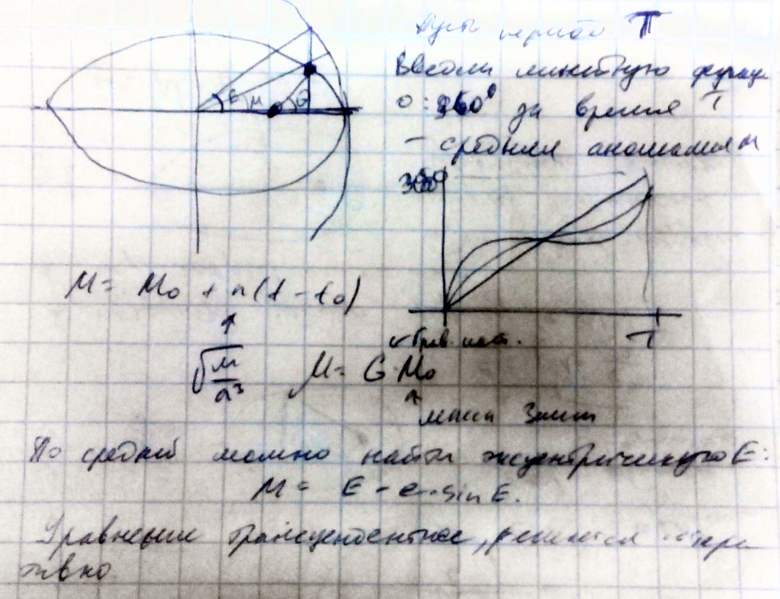 E M θ
Пусть период T
Ввели линейную функц
0:360° за время T
- средняя аномалия M
360°
T
M = M₀ + n(t - t₀)
↑
√(μ/a³)
грав. пост.
μ = G·M₀
↑
масса Земли
По средней можно найти эксцентрическую E:
M = E - e·sin E.
Уравнение трансцендентное, решается итера
тивно